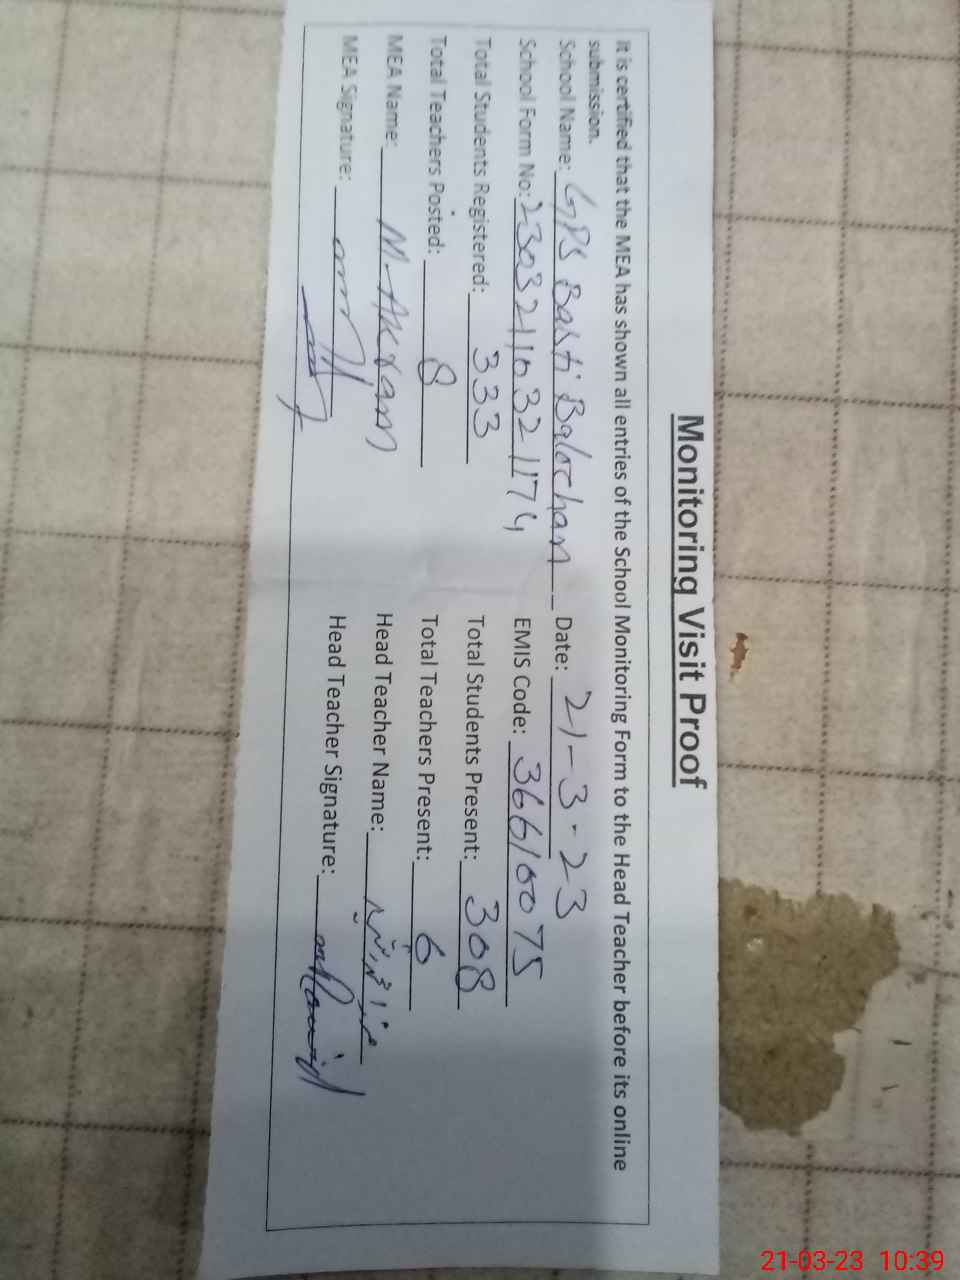 Monitoring Visit Proof
It is certified that the MEA has shown all entries of the School Monitoring Form to the Head Teacher before its online
submission.
School Name: GPS Basti Balochan Date: 21-3-23
School Form No: 23032110321174 EMIS Code: 36610075
Total Students Registered: 333 Total Students Present: 308
Total Teachers Posted: 8 Total Teachers Present: 6
MEA Name: M-Akram Head Teacher Name:
MEA Signature: Head Teacher Signature:
21-03-23 10:39